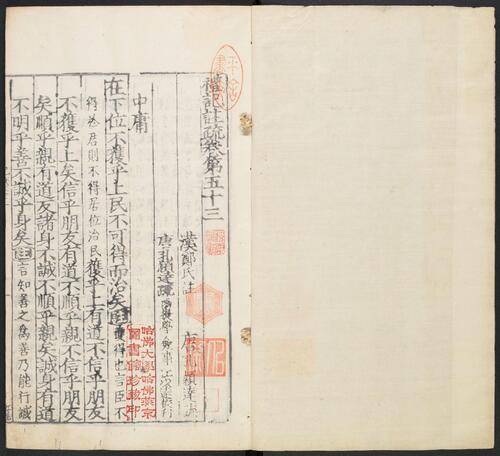 禮記註疏卷第五十三
漢鄭氏註
唐孔穎達疏
中庸
在下位不獲乎上民不可得而治矣註獲得也言臣不
得於君則不得居位治民獲乎上有道不信乎朋友
不獲乎上矣信乎朋友有道不順乎親不信乎朋友
矣順乎親有道反諸身不誠不順乎親矣誠身有道
不明乎善不誠乎身矣註言知善之為善乃能行誠
哈佛大學哈佛燕京
圖書館珍藏印